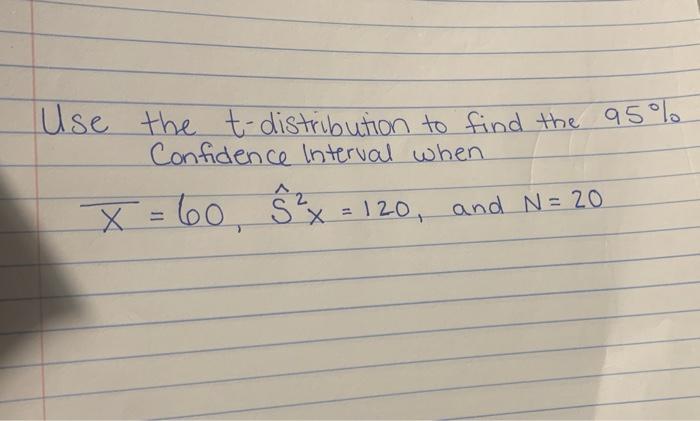 Use the t-distribution to find the 95%
Confidence Interval when
x̄ = 60, Ŝ²x = 120, and N = 20